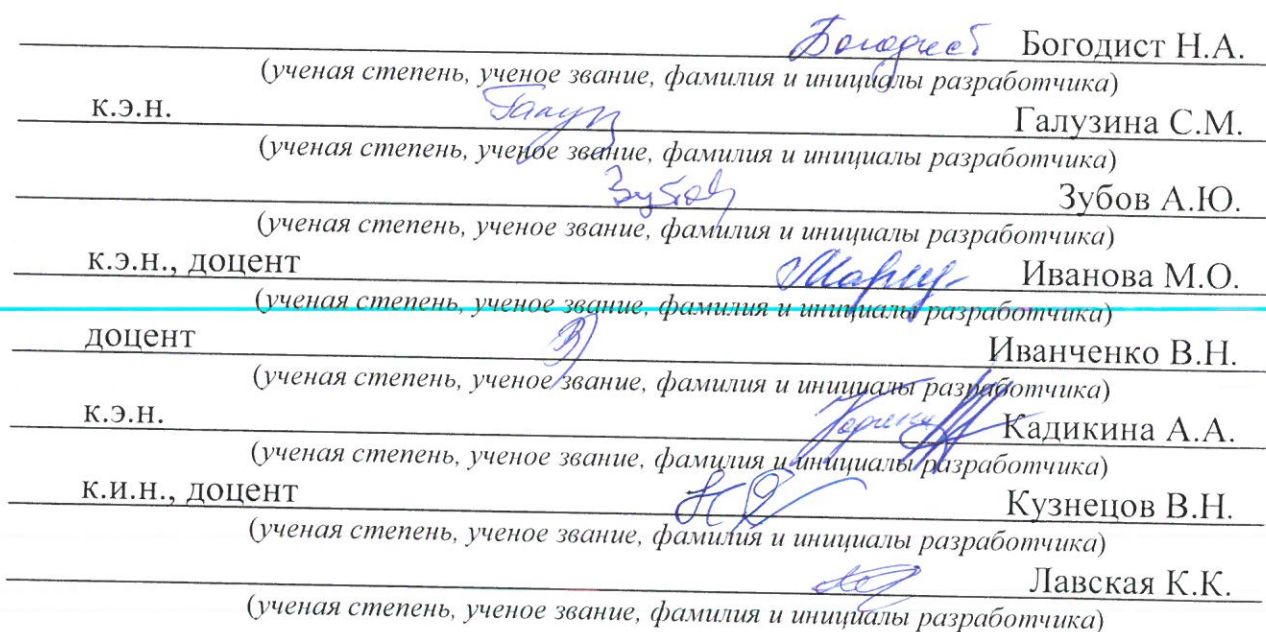 Богодист Богодист Н.А.
(ученая степень, ученое звание, фамилия и инициалы разработчика)
к.э.н. Галузина С.М.
(ученая степень, ученое звание, фамилия и инициалы разработчика)
Зубов Зубов А.Ю.
(ученая степень, ученое звание, фамилия и инициалы разработчика)
к.э.н., доцент Иванова М.О.
(ученая степень, ученое звание, фамилия и инициалы разработчика)
доцент Иванченко В.Н.
(ученая степень, ученое звание, фамилия и инициалы разработчика)
к.э.н. Кадикина А.А.
(ученая степень, ученое звание, фамилия и инициалы разработчика)
к.и.н., доцент Кузнецов В.Н.
(ученая степень, ученое звание, фамилия и инициалы разработчика)
Лавская К.К.
(ученая степень, ученое звание, фамилия и инициалы разработчика)